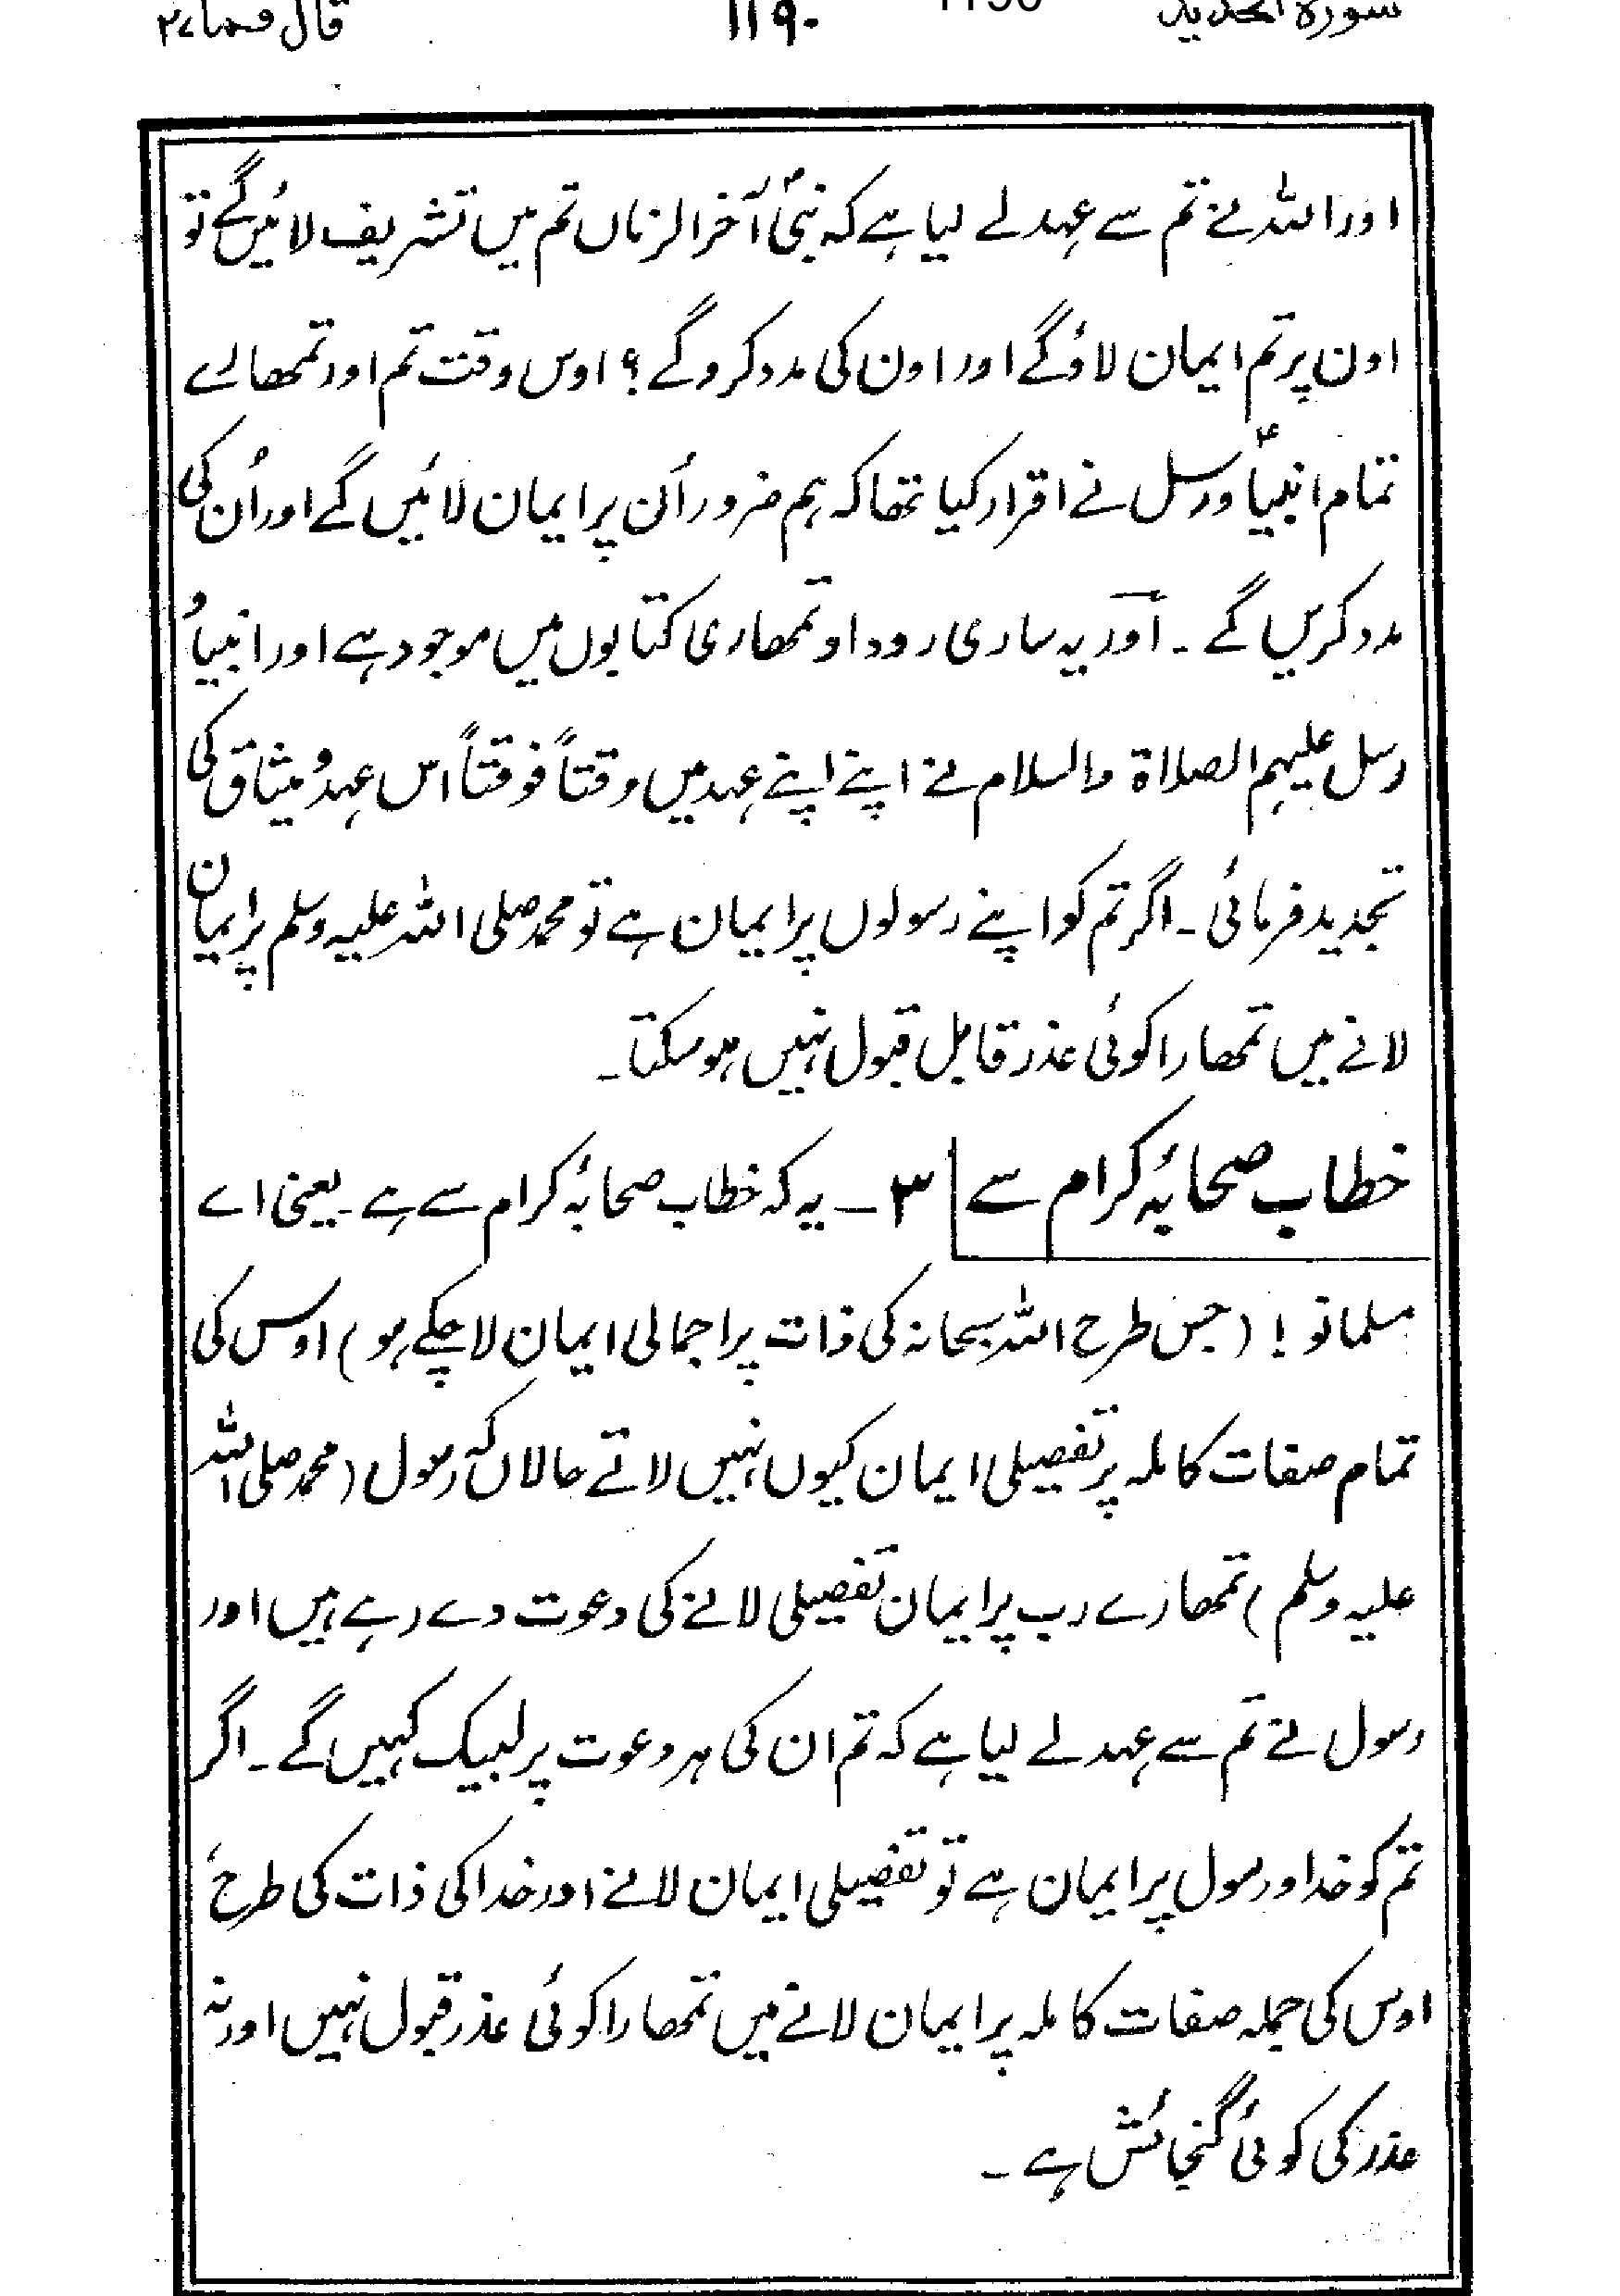 سورۃ الحدید ۱۱۹۰ 1190 قال فما ۲۷
اور اللہ نے تم سے عہد لے لیا ہے کہ نبیؐ آخر الزماں تم میں تشریف لائیں گے تو
اون پر تم ایمان لاؤ گے اور اون کی مدد کرو گے ؟ اوس وقت تم اور تمھارے
تمام انبیاؑ ورسل نے اقرار کیا تھا کہ ہم ضرور اُن پر ایمان لائیں گے اور اُن کی
مدد کریں گے ۔ اور یہ ساری روداد تمھاری کتابوں میں موجود ہے اور انبیا و
رسل علیہم الصلاۃ والسلام نے اپنے اپنے عہد میں وقتاً فوقتاً اس عہد و میثاق کی
تجدید فرمائی ۔ اگر تم کو اپنے رسولوں پر ایمان ہے تو محمد صلی اللہ علیہ وسلم پر ایمان
لانے میں تمھارا کوئی عذر قابل قبول نہیں ہو سکتا ۔
خطاب صحابۂ کرام سے ۳ ۔ یہ کہ خطاب صحابۂ کرام سے ہے ۔ یعنی اے
مسلمانو ! (جس طرح اللہ سبحانہ کی ذات پر اجمالی ایمان لا چکے ہو) اوس کی
تمام صفات کاملہ پر تفصیلی ایمان کیوں نہیں لاتے حالاں کہ رسول (محمد صلی اللہ
علیہ وسلم) تمھارے رب پر ایمان تفصیلی لانے کی دعوت دے رہے ہیں اور
رسول نے تم سے عہد لے لیا ہے کہ تم ان کی ہر دعوت پر لبیک کہیں گے ۔ اگر
تم کو خدا و رسول پر ایمان ہے تو تفصیلی ایمان لانے اور خدا کی ذات کی طرح
اوس کی جملہ صفات کاملہ پر ایمان لانے میں تمھارا کوئی عذر قبول نہیں اور نہ
عذر کی کوئی گنجائش ہے ۔